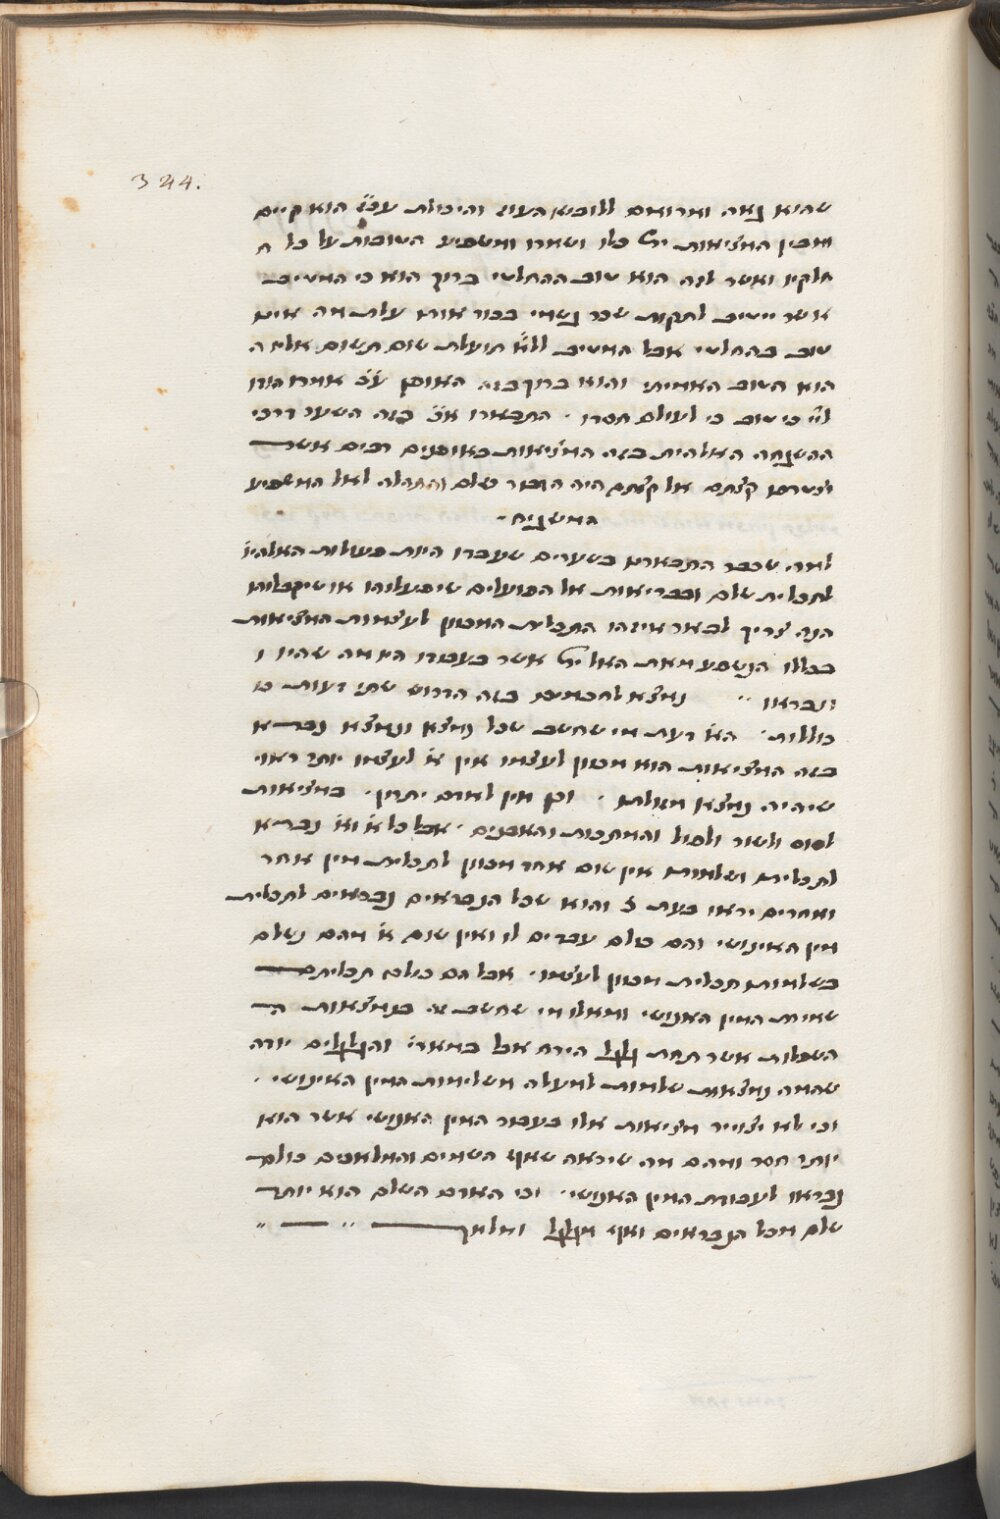 324.
שהוא נאה ומרומם ללובש העוז והיכולת עכ״ז הוא קיים
ומכין המציאות ית׳ כלו ושמרו ומשפיע הטובות על כל ח
חלקיו ואשר לזה הוא טוב בהחלט ברוך הוא כי המטיב
אשר ייטיב לתקות שכר גשמי בכור אורו עלת מה אינו
טוב בהחלט אבל המטיב ללא תועלת שום תשום אליו ה
הוא הטוב האמיתי והוא ברוך בזה האופן ע״כ אמרו הודו
לי״י כי טוב כי לעולם חסדו · התבארו א״כ בזה השער דרכי
ההשגחה האלהית בזה המציאות באופנים רבים אשר
יצטרפו קצתם אל קצתם היה הדבור שלם והתהלה לאל המשפיע
המשגיח ·
לפי שכבר התבארו בשערים שעברו היות פעולות האלהיו׳
לתכלית שלם ובבריאות אל הפועלים שיפעלוהו או שיקבלוהו
הנה צריך לבאר איזהו התכלית המכוון לעצמות המציאות
בכללו הנשפע מאת האל ית׳ אשר בעבורו היו מה שהיו ו
ונבראו ״ נמצא לחכמים בזה הדרוש שתי דעות כו
כוללות · הא׳ דעת מי שחשב שכל נמצא ונמצא נברא
בזה המציאות הוא מכוון לעצמו אין א׳ לעצמו יותר ראוי
שיהיה נמצא מזולתו · וכן אין לאדם יתרון · במציאות
לסוס ולשור ולסול והמתכות והאבנים · אבל כל א׳ וא׳ נברא
לתכליתו ושלמותו אין שום אחד מכוון לתכלית מין אחר
ואחרים יראו בעת ז והוא שכל הנבראים נבראים לתכלית
מין האינושי והם כולם עבדים לו ואין שום א׳ מהם נשלם
בשלמות תכלית מכוון לעצמו · אבל הם כולם תכליתם
שמירת המין האנושי ומאלו מי שחשב זה בנמצאות ה
השפלות אשר תחת גלגל הירח אבל במאורי׳ והגלגלים יודה
שהמה נמצאות שלמות למעלה משלימות המין האינושי ·
וכי לא יצוייר מציאות אלו בעבור המין האנושי אשר הוא
יותר חסר ומהם מה שיראה שאף השמים והמלאכים כולם
נבראו לעבודת המין האנושי · וכי האדם השלם הוא יותר
שלם מכל הנבראים ואף מגלגל ומלאך ״ ״